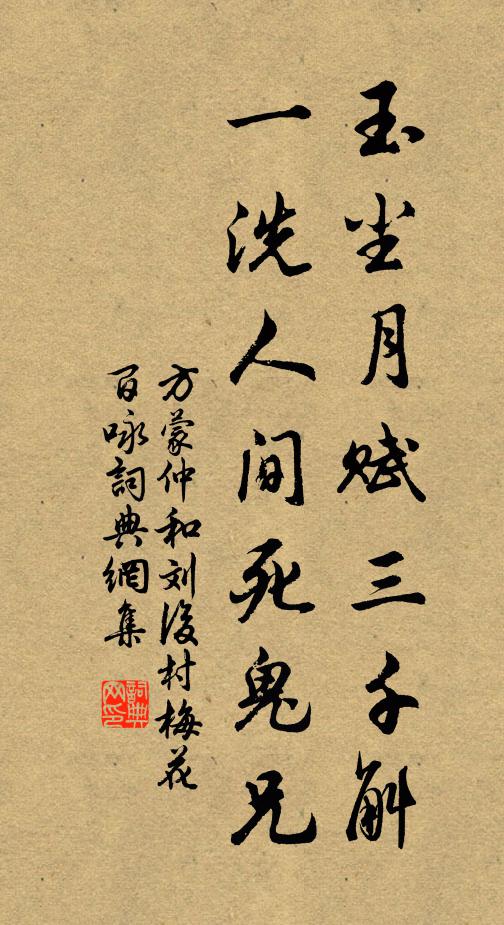 玉尘月赋三千斛
一洗人间死鬼兄
方蒙仲和刘後村梅花
百咏詞典網集
詞典网印